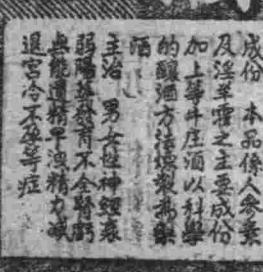 成份　本品係人參素
及淫羊霍之主要成份
加上等半庄酒以科學
的釀酒方法煉製為藥
酒
主治　男女性神經衰
弱陽萎發育不全腎虧
無能遺精早洩精力減
退宮冷不孕等症